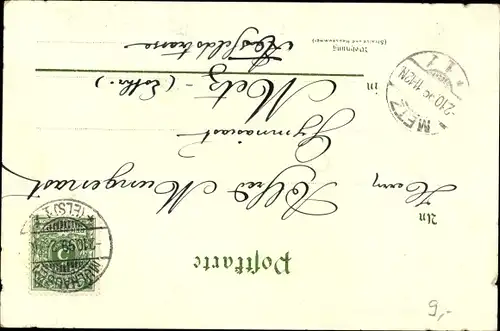 Postkarte
An
Herrn Alfred Mungenast
Gymnasiast
in Metz - (Lothr.)
Wohnung
(Straße und Hausnummer)
METZ
2.10.98 11-12N
1
MÜLHAUSEN
2.10.98
*(ELS.) 1
5
9,-